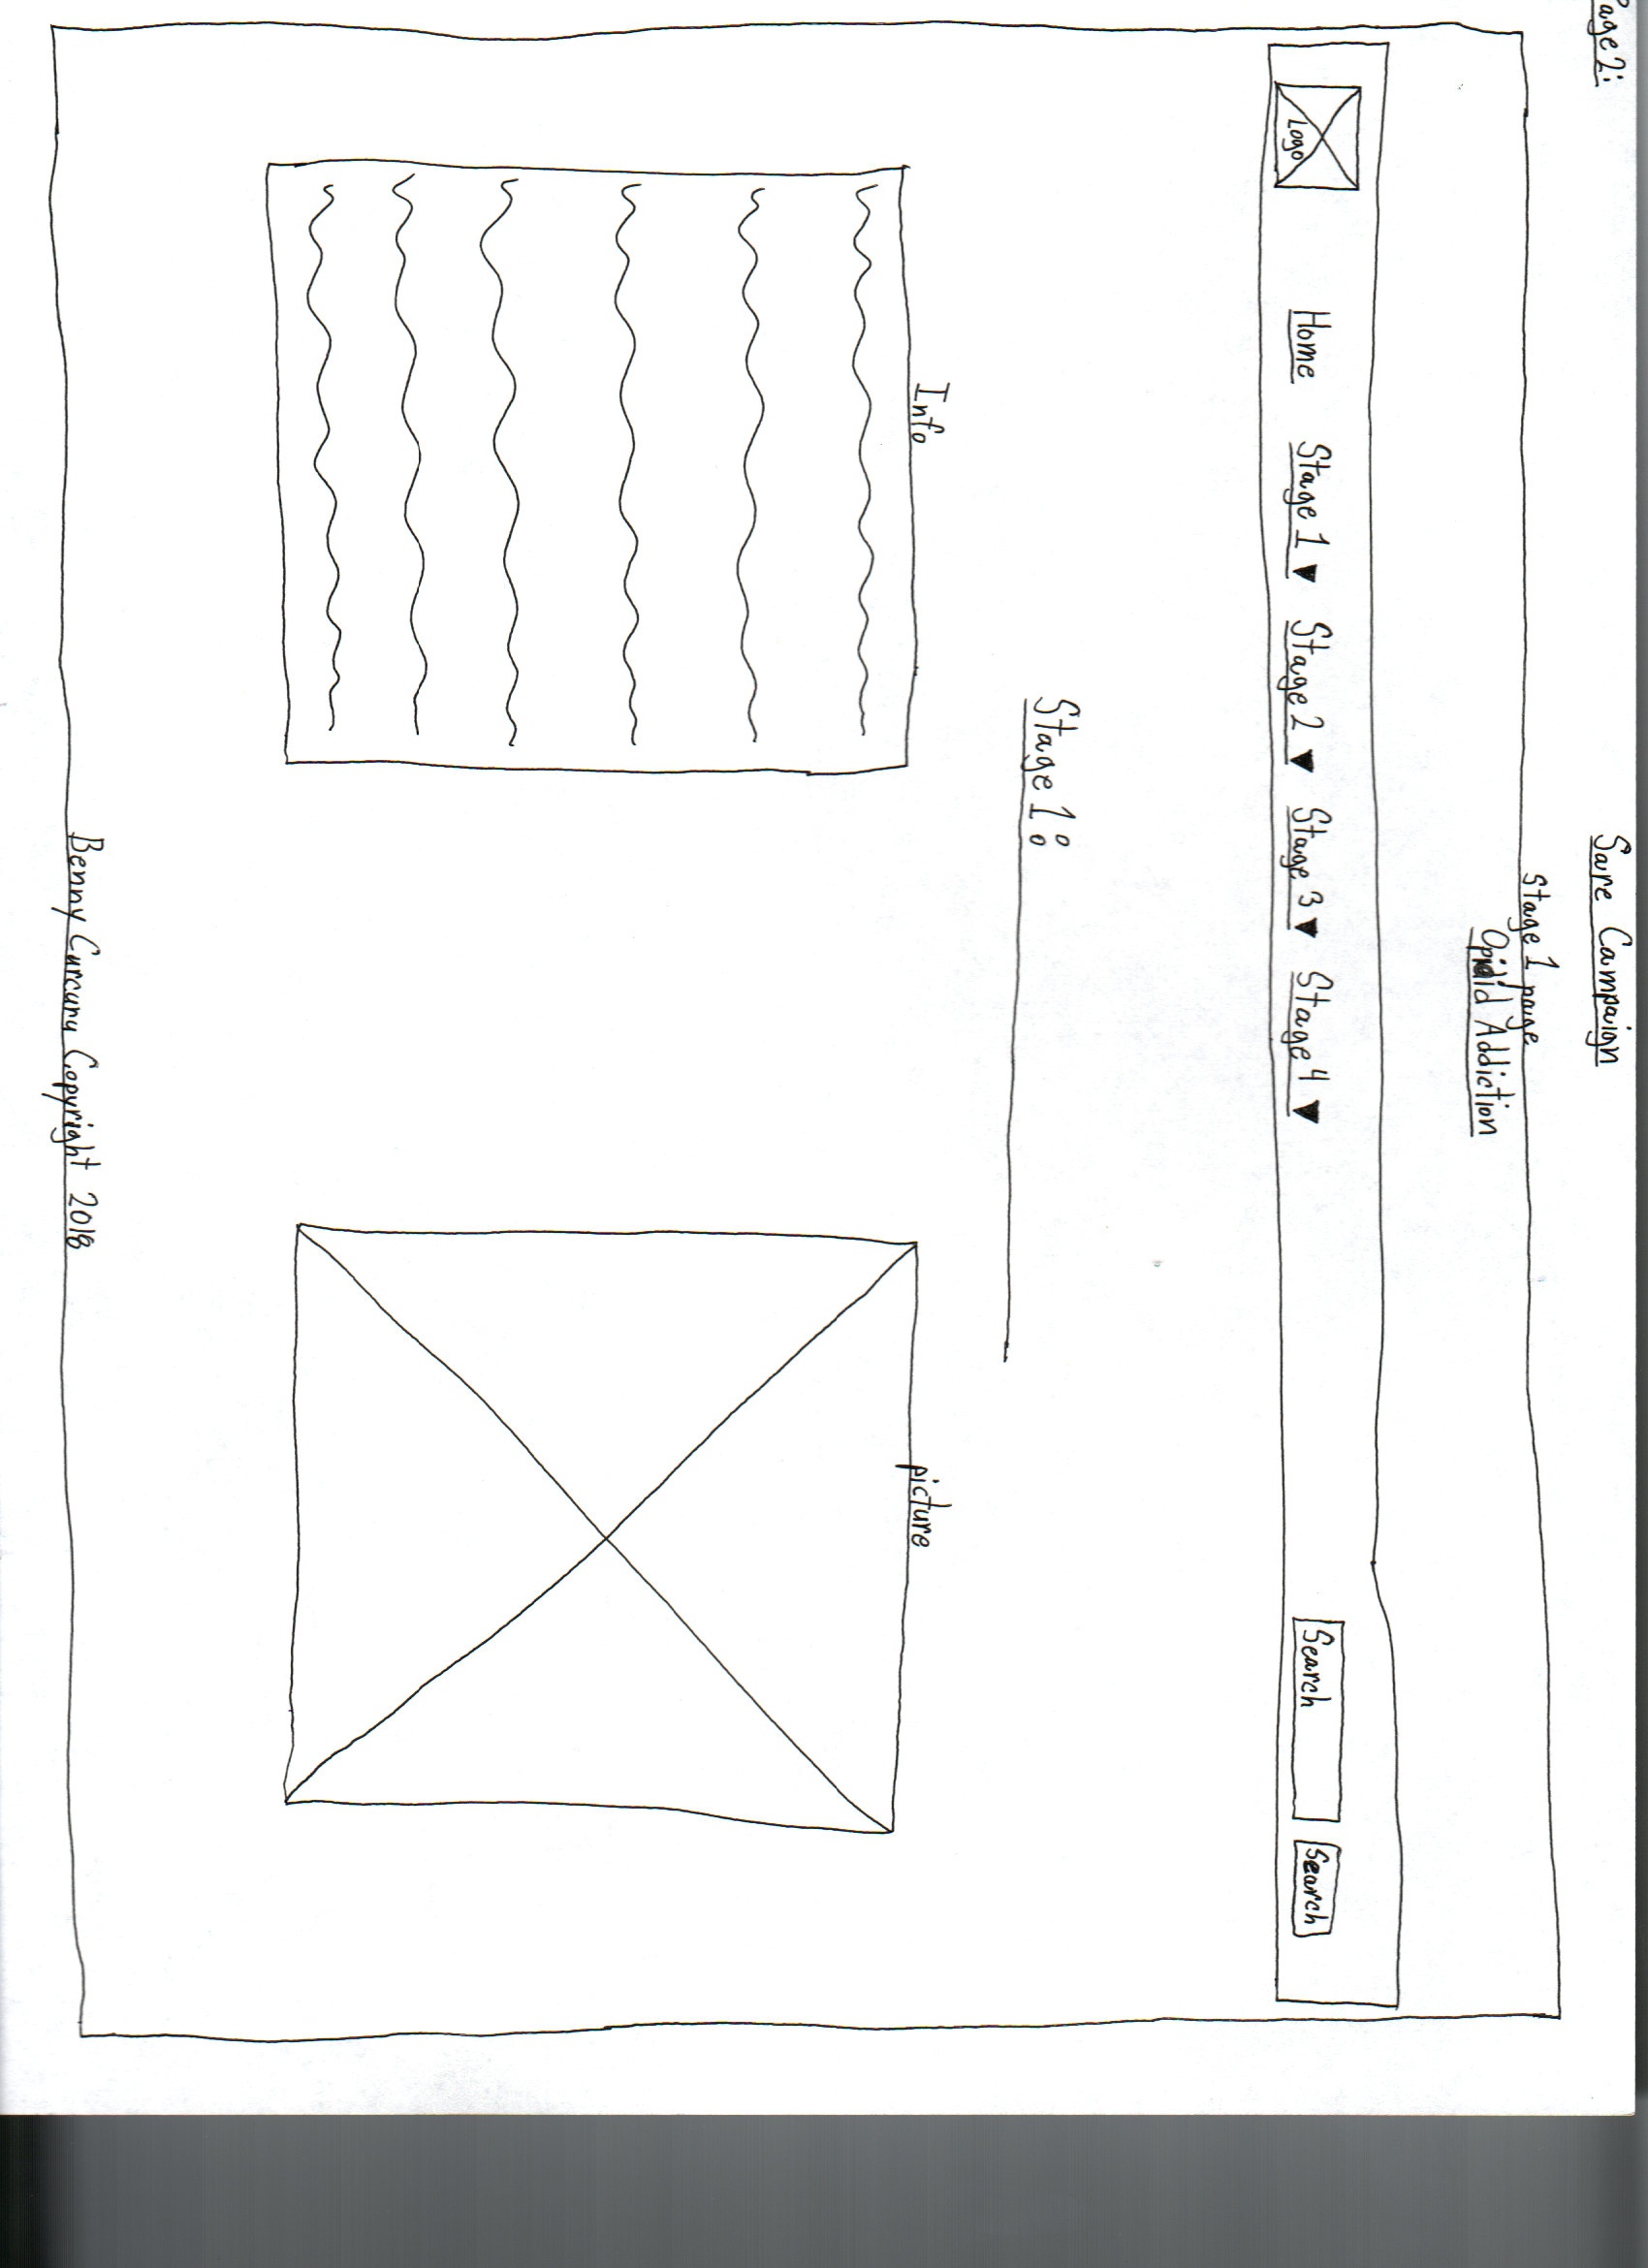 Page 2:
Campaign
Stage 1 page
Opioid Addiction
Logo
Home Stage 1 Stage 2 Stage 3 Stage 4 Search Search
Stage 1:
Info
picture
Benny Curcuru Copyright 2018